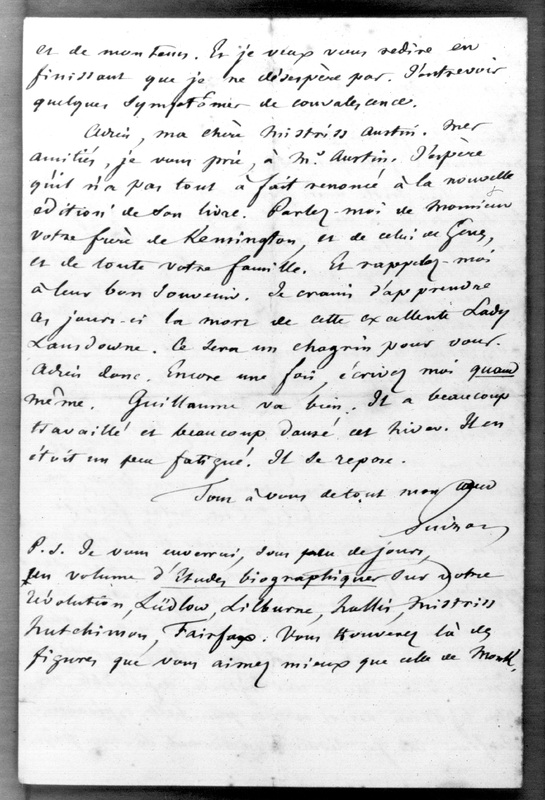 et de montons. Et je veux vous redire en
finissant que je ne désespère pas. J'entrevois
quelques symptômes de convalescence.
Adieu, ma chère Mistriss Austin. Mes
amitiés, je vous prie, à Mr Austin. J'espère
qu'il n'a pas tout à fait renoncé à la nouvelle
édition de son livre. Parlez-moi de Monsieur
votre frère de Kensington, et de celui de
et de toute votre famille. Et rappelez-moi
à leur bon souvenir. Je crains d'apprendre
ces jours-ci la mort de cette excellente Lady
Lansdowne. Ce sera un chagrin pour vous.
Adieu donc. Encore une fois, écrivez moi quand
même. Guillaume va bien. Il a beaucoup
travaillé et beaucoup dansé cet hiver. Il en
étoit un peu fatigué. Il se repose.
Tout à vous de tout mon coeur
Guizot
P.S. Je vous enverrai, sous peu de jours,
un volume d'Etudes biographiques sur votre
révolution, Lüdlow, Lilburne, Hollis, Mistriss
Hutchinson, Fairfax. Vous trouverez là des
figures que vous aimez mieux que celle de Monk.